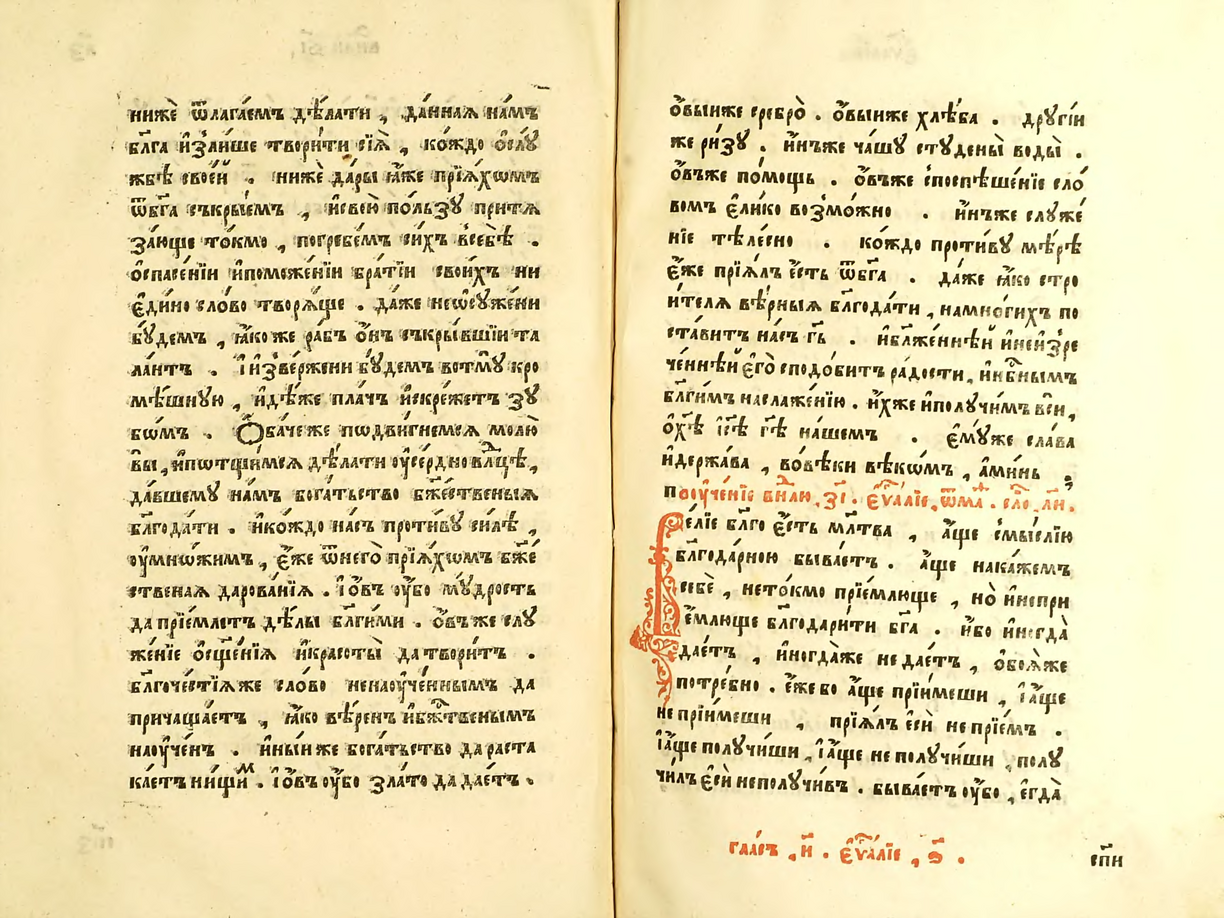 нижѐ ѿлага́емъ дѣ́лати , да́нная на́мъ
бл҃га и҆зли́ше твори́ти сїѧ̀ , ко́ждо ѻ҆слꙋ
жбѣ̀ свое́й . нижѐ да́ры ꙗ҆́же прїѧ́хѡмъ
ѿбг҃а съкры́емъ , и҆свою̀ по́льзꙋ притѧ
за́юще то́кмо , погребе́мъ си́хъ всебѣ̀ .
ѻ҆спасе́нїи и҆поможе́нїи бра́тїи свои́хъ ни
е҆ди́но сло́во творѧ́ще . да́же неѡ҆сꙋ́жени
бꙋ́демъ , ꙗ҆́коже ра́бъ ѻ҆́нъ съкры́вшїи та
ла́нтъ . і҆и҆зве́ржени бꙋ́демъ вотмꙋ̀ кро
мѣ́шнюю , и҆дѣ́же пла́чь и҆скре́жетъ зꙋ
бѡ́мъ . Ѻ҆ба́че же пѡдви́гнемсѧ молю̀
вы̀ , и҆пѡтщи́мсѧ дѣ́лати ᲂу҆се́рдно влⷣцѣ ,
да́вшемꙋ на́мъ бога́тьство бж҃е́ственыѧ
бл҃года́ти . и҆ко́ждо на́съ проти́вꙋ си́лѣ ,
ᲂу҆мно́жимъ , є҆́же ѿнего̀ прїѧ́хѡмъ бж҃е́
ственаѧ дарова́нїѧ . і҆ѻ҆́въ ᲂу҆́бо мꙋ́дрость
да прїе́млетъ дѣ́лы бл҃ги́ми . ѻ҆́въ же слꙋ
же́нїе ѻ҆сщ҃е́нїѧ и҆красоты̀ да твори́тъ .
бл҃гоче́стїѧ же сло́во ненаᲂу҆че́ннымъ да
причаща́етъ , ꙗ҆́ко вѣ́ренъ и҆бж҃твенымъ
наᲂу҆че́нъ . и҆ны́и же бога́тьство да раста
ка́етъ ни́щиⷨ . і҆ѻ҆́въ ᲂу҆́бо зла́то да дае́тъ .
ѻ҆́выиже сребро̀ . ѻ҆́выиже хлѣ́ба . дрꙋгі́и
же ри́зꙋ . и҆́нъже ча́шꙋ стꙋ́дены̀ воды̀ .
ѻ҆́въже по́мощь . ѻ҆́въже споспѣше́нїе сло́
вомъ є҆ли́ко возмо́жно . и҆́нъже слꙋже́
нїе тѣле́сно . ко́ждо проти́вꙋ мѣ́рѣ
є҆́же прїѧ́лъ є҆́сть ѿбг҃а . да́же ꙗ҆́ко стро
и́телѧ вѣ́рныѧ бл҃года́ти , намно́гихъ по
ста́витъ на́съ гь҃ . и҆бл҃же́ннѣй и҆неи҆зре
че́ннѣй є҆го̀ сподо́битъ ра́дости , и҆нбⷭ҇нымъ
бл҃ги́мъ наслажде́нїю . и҆́хже и҆полꙋчи́мъ вси̑ ,
ѻ҆хⷭ҇ѣ і҆с҃ѣ гд҃ѣ на́шемъ . є҆мꙋ́же сла́ва
и҆держа́ва , во́вѣки вѣкѡ́мъ , а҆ми́нь .
поᲂу҆че́нїе внⷣлю , з҃і . є҆ѵⷢ҇а́лїе , ѿмаⷴ . сло , ли .
Ве́лїе бл҃го є҆́сть мл҃тва , а҆́ще смы́слїю
бл҃года́рною быва́етъ . а҆́ще нака́жемъ
себѐ , нето́кмо прїе́млюще , но̀ и҆непри
е́млюще бл҃годари́ти бг҃а . и҆́бо и҆ногда̀
дае́тъ , и҆ногда́же не дае́тъ , ѻ҆боѧ́же
потре́бно . є҆́же бо а҆́ще прїи́меши , і҆а҆́ще
не прїи́меши , прїѧ́лъ є҆сѝ не прїе́мъ .
і҆а҆́ще полꙋчи́ши , і҆а҆́ще не полꙋчи́ши , полꙋ
чи́лъ є҆сѝ неполꙋчи́въ . быва́етъ ᲂу҆́бо , є҆гда̀
гла́съ , и҃ . є҆ѵⷢ҇а́лїе , ѳ҃ .
сп҃и